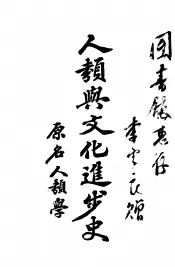 圖書館惠存
李雲良贈
人類與文化進步史
原名人類學